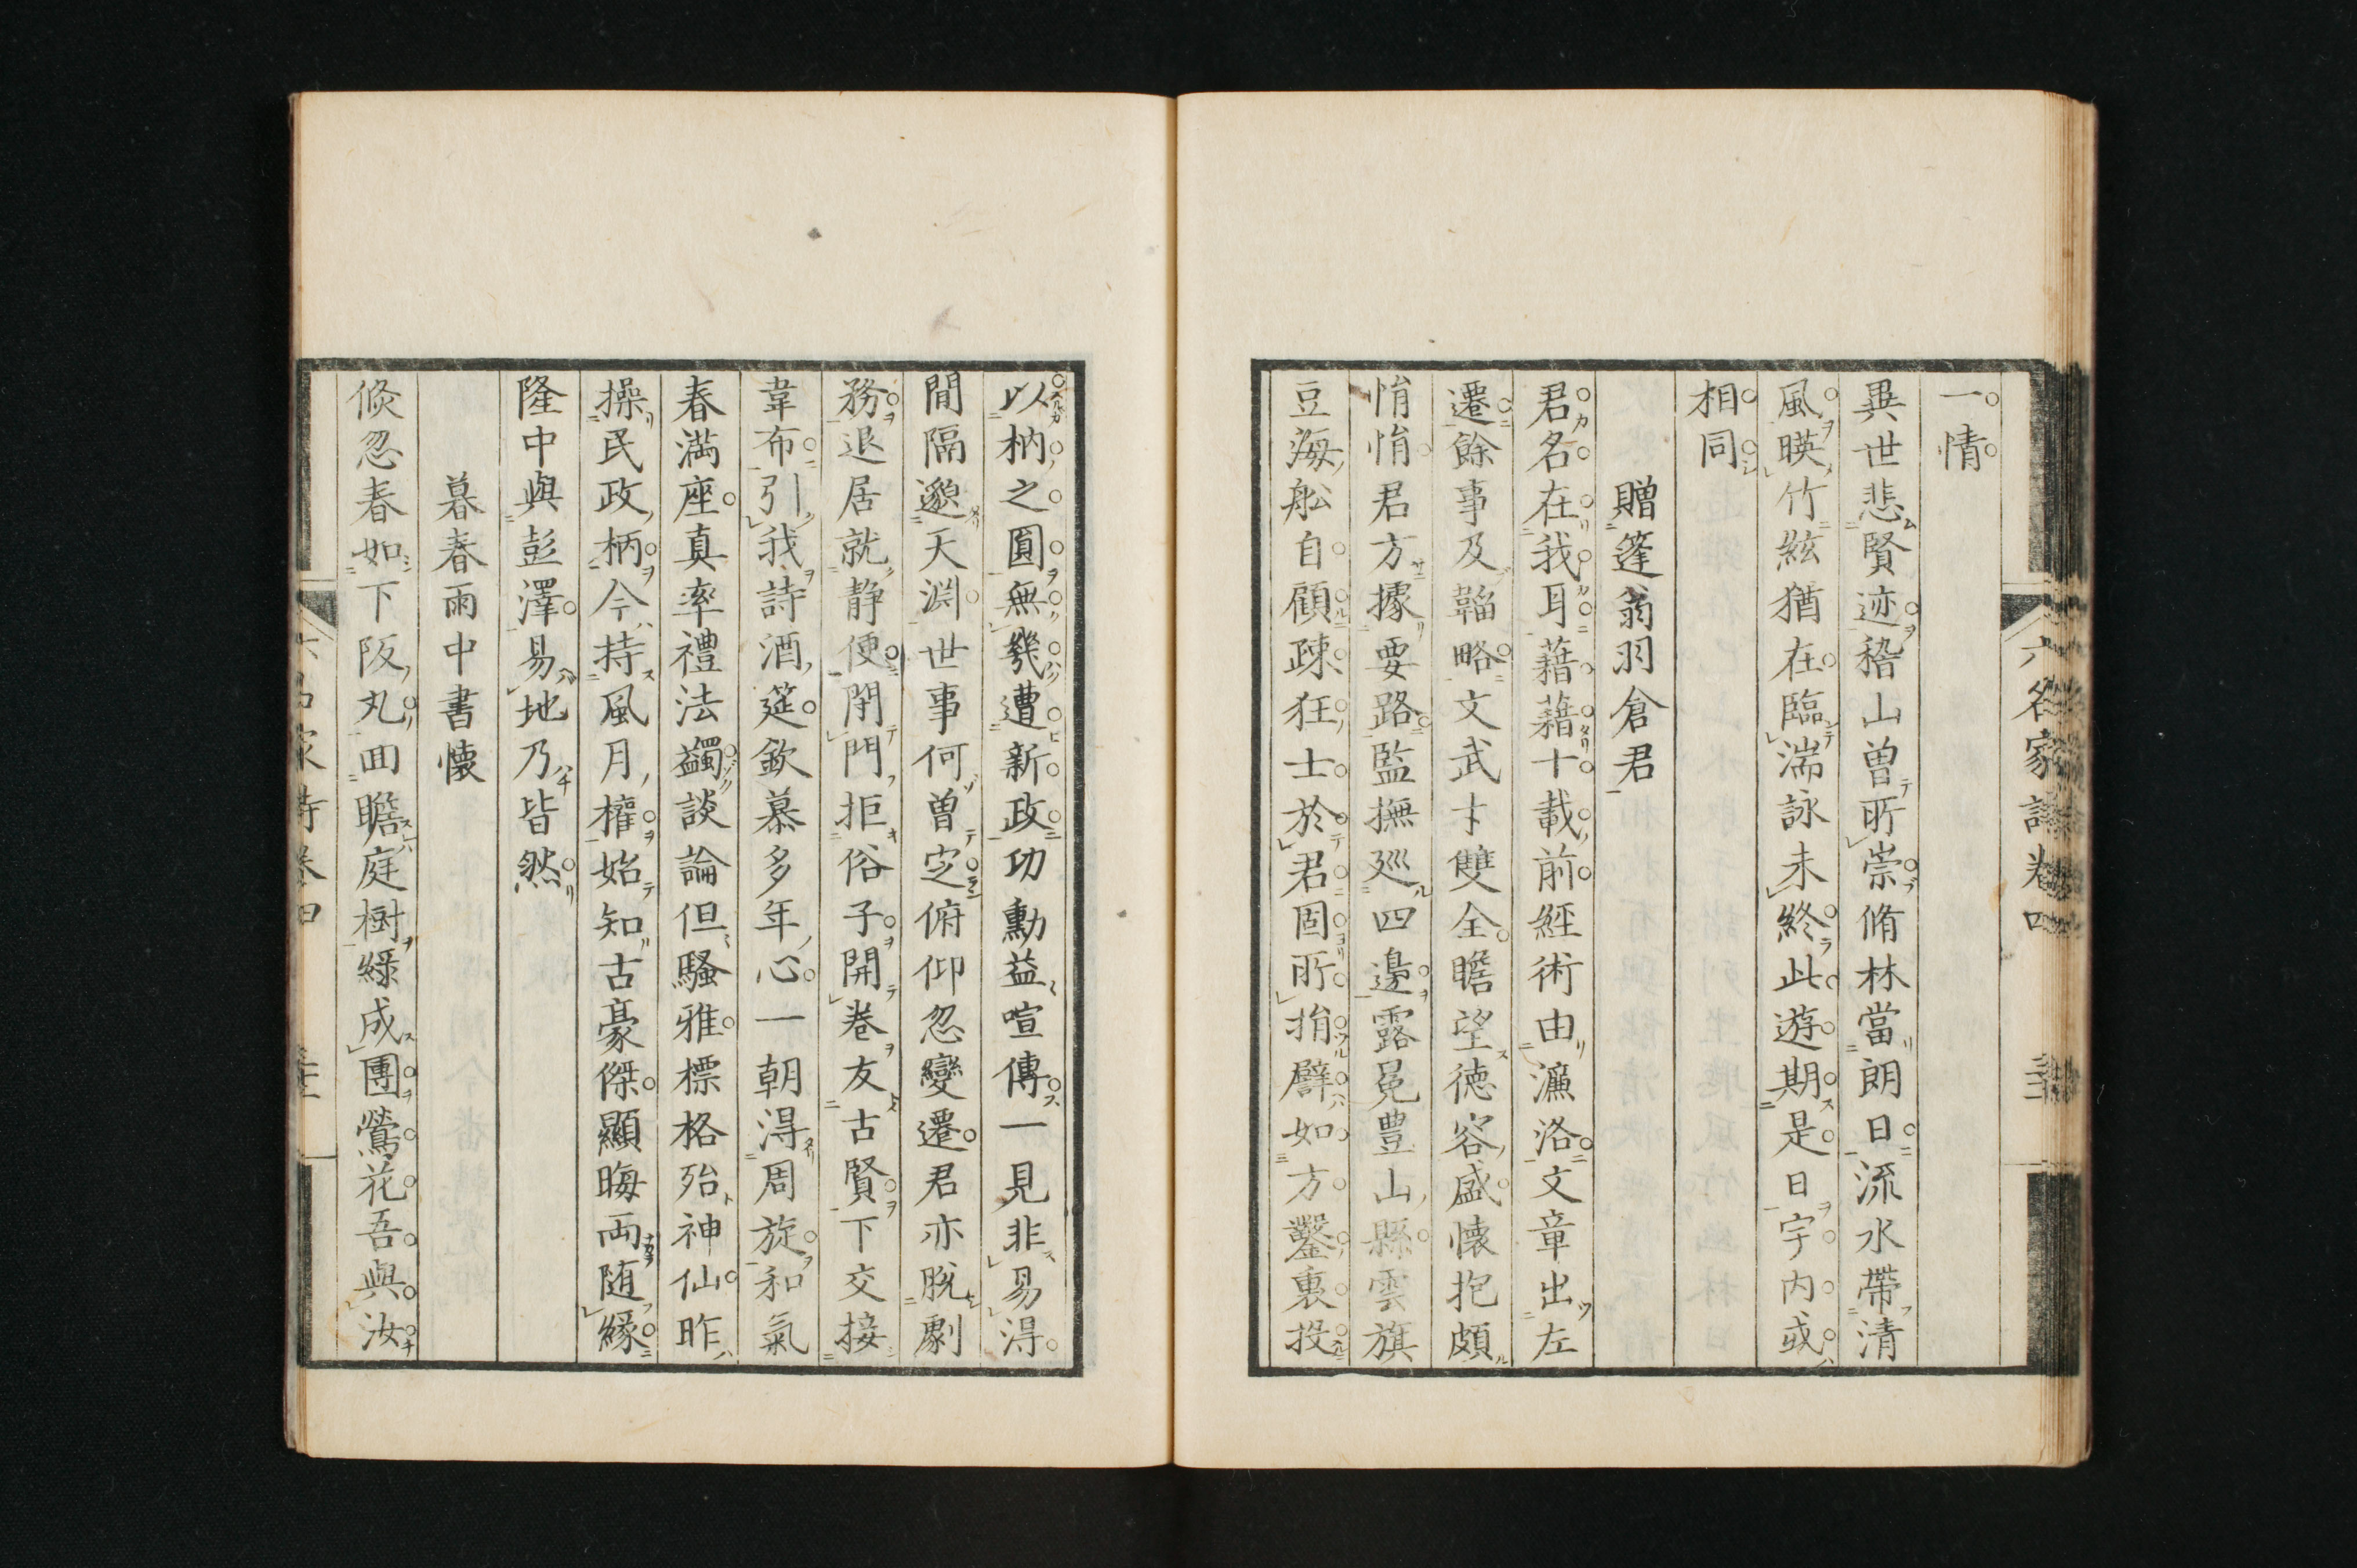 六名家詩卷四
一情
異世悲賢迹稽山曽所崇脩林當朗日流水帶清
風暎竹絃猶在臨湍詠未終此遊期是日宇内或
相同
贈篷翁羽倉君
君名在我耳藉藉十載前經術由濂洛文章出左
遷餘事及韜略文武才雙全瞻望徳容盛懐抱頗
悁悁君方據要路監撫巡四邉露冕豊山縣雲旗
豆海舩自顧疎狂士於君固所捐譬如方鑿裏投
以枘之圓無幾遭新政功勳益喧傳一見非易得
間隔邈天淵世事何曽定俯仰忽變遷君亦脱劇
務退居就静便閉門拒俗子開巻友古賢下交接
韋布引我詩酒筵欽慕多年心一朝得周旋和氣
春満座真率禮法蠲談論但騷雅標格殆神仙昨
操民政柄今持風月權始知古豪傑顯晦両随縁
隆中與彭澤易地乃皆然
暮春雨中書懐
倏忽春如下阪丸回瞻庭樹緑成團鶯花吾與汝